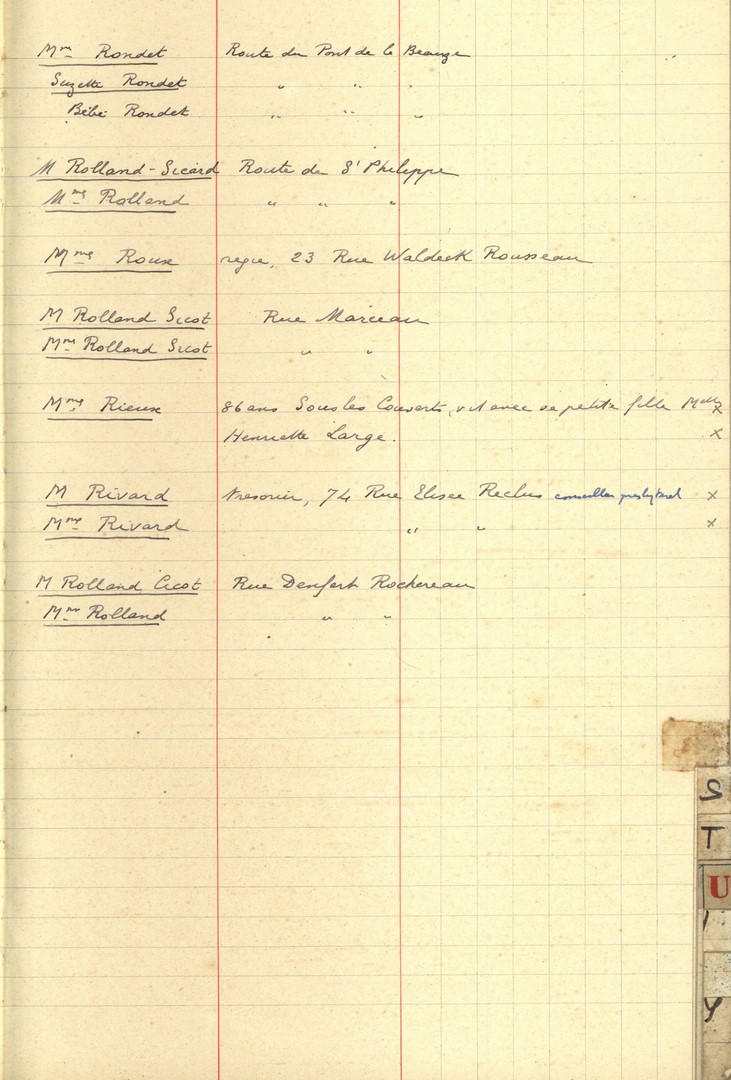 Mm Rondet Route du Pont de la Beauge
Suzette Rondet " " "
Bébé Rondet " " "
M Rolland-Sicard Route de St Philippe
Mme Rolland " " "
Mme Roux 23 Rue Waldeck Rousseau
M Rolland Sicot Rue Marceau
Mme Rolland Sicot " "
Mme Rieux 86 ans Sous les Couverts, vit avec sa petite fille Melle x
Henriette Large. x
M Rivard tresorier, 74 Rue Elisee Reclus conseiller presbyteral x
Mme Rivard " " x
M Rolland Cicot Rue Denfert Rochereau
Mme Rolland " "
S
T
U
Y